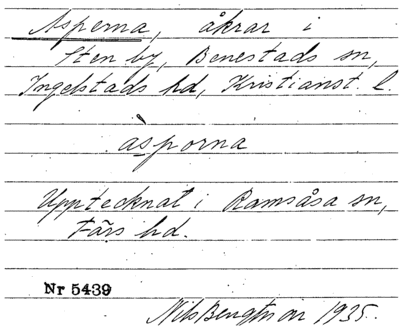 Asperna, åkrar i
Sten by, Benestads sn,
Ingelstads hd, Kristianst. l.
àsporna
Upptecknat i Ramsåsa sn,
Färs hd.
Nr 5439
Nils Bengtsson 1935.